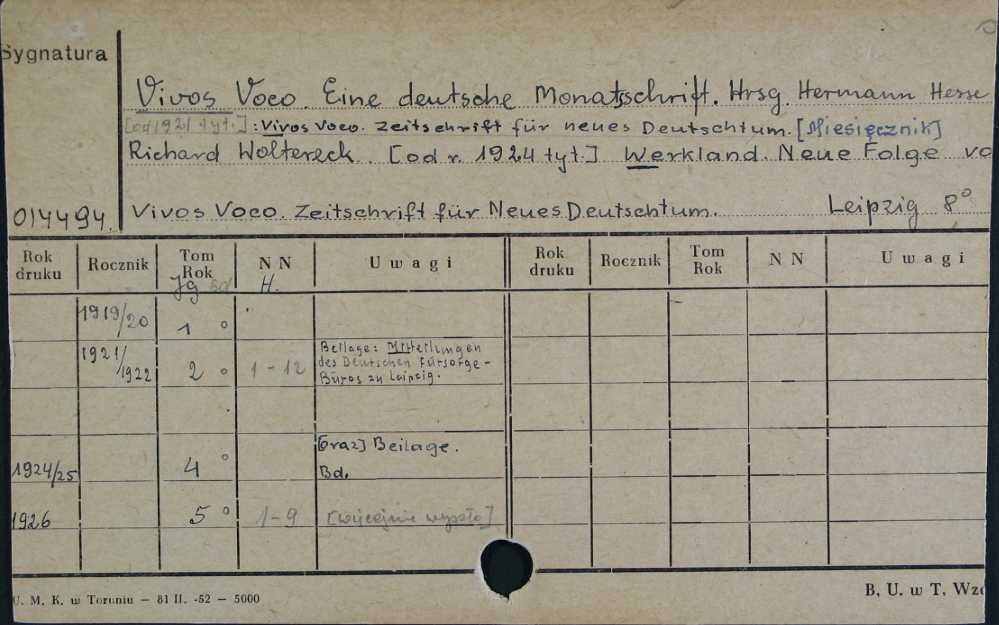 Sygnatura
Vivos Voco. Eine deutsche Monatsschrift. Hrsg. Hermann Hesse
[od 1921 tyt.]: Vivos voco. Zeitschrift für neues Deutschtum. [Miesięcznik]
Richard Woltereck. [od r. 1924 tyt.] Werkland. Neue Folge vo
014494. Vivos Voco. Zeitschrift für Neues Deutschtum. Leipzig 8°
Rok druku Rocznik Tom Rok N N Uwagi Rok druku Rocznik Tom Rok N N Uwagi
Jg H.
1919/20 1 °
1921/1922 2 ° 1-12 Beilage: Mitteilungen
des Deutschen Fürsorge-
Büros zu Leipzig.
[oraz] Beilage.
1924/25 4 ° Bd.
1926 5 ° 1-9 [więcej nie wyszło]
U. M. K. w Toruniu — 81 II. -52 — 5000
B. U. w T. Wzó